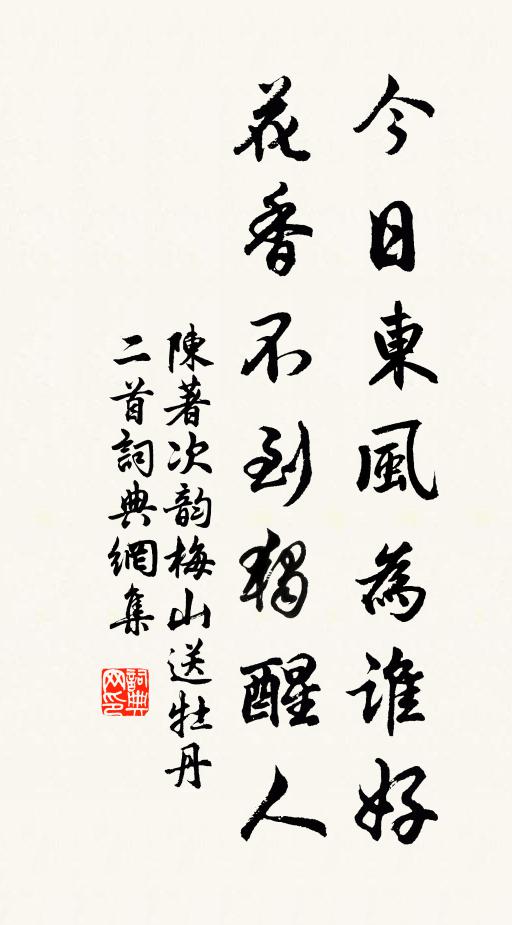 今日東風為誰好
花香不到獨醒人
陳著次韵梅山送牡丹
二首詞典網集
詞典
网印